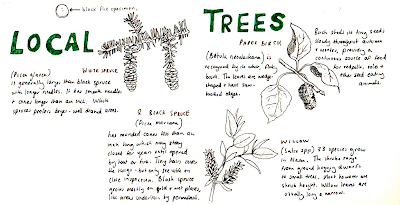 black fire specimen.
LOCAL
TREES
WHITE SPRUCE
(Picea glauca)
is generally larger than black spruce
with longer needles. It has smooth needles
+ cones longer than an inch. White
spruce prefers large - well drained areas.
BLACK SPRUCE
(Picea mariana)
has rounded cones less than an
inch long which may stay
closed for years until opened
by heat or fire. Tiny hairs cover
the twigs - but only see able on
close inspection. Black spruce
grows mostly on cold + wet places,
like areas underlain by permafrost.
PAPER BIRCH
(Betula neoalaskana) is
recognized by its white, flaky,
bark. The leaves are wedge-
shaped + have saw-
toothed edges.
Birch sheds its tiny seeds
slowly throughout autumn
+ winter, providing a
continuous source of food
for redpolls, voles +
other seed eating
animals.
WILLOW
(Salix spp) 33 species grow
in Alaska. The shrubs range
from ground hugging dwarfs
to small trees. Most however are
shrub height. Willow leaves are
usually long + narrow.